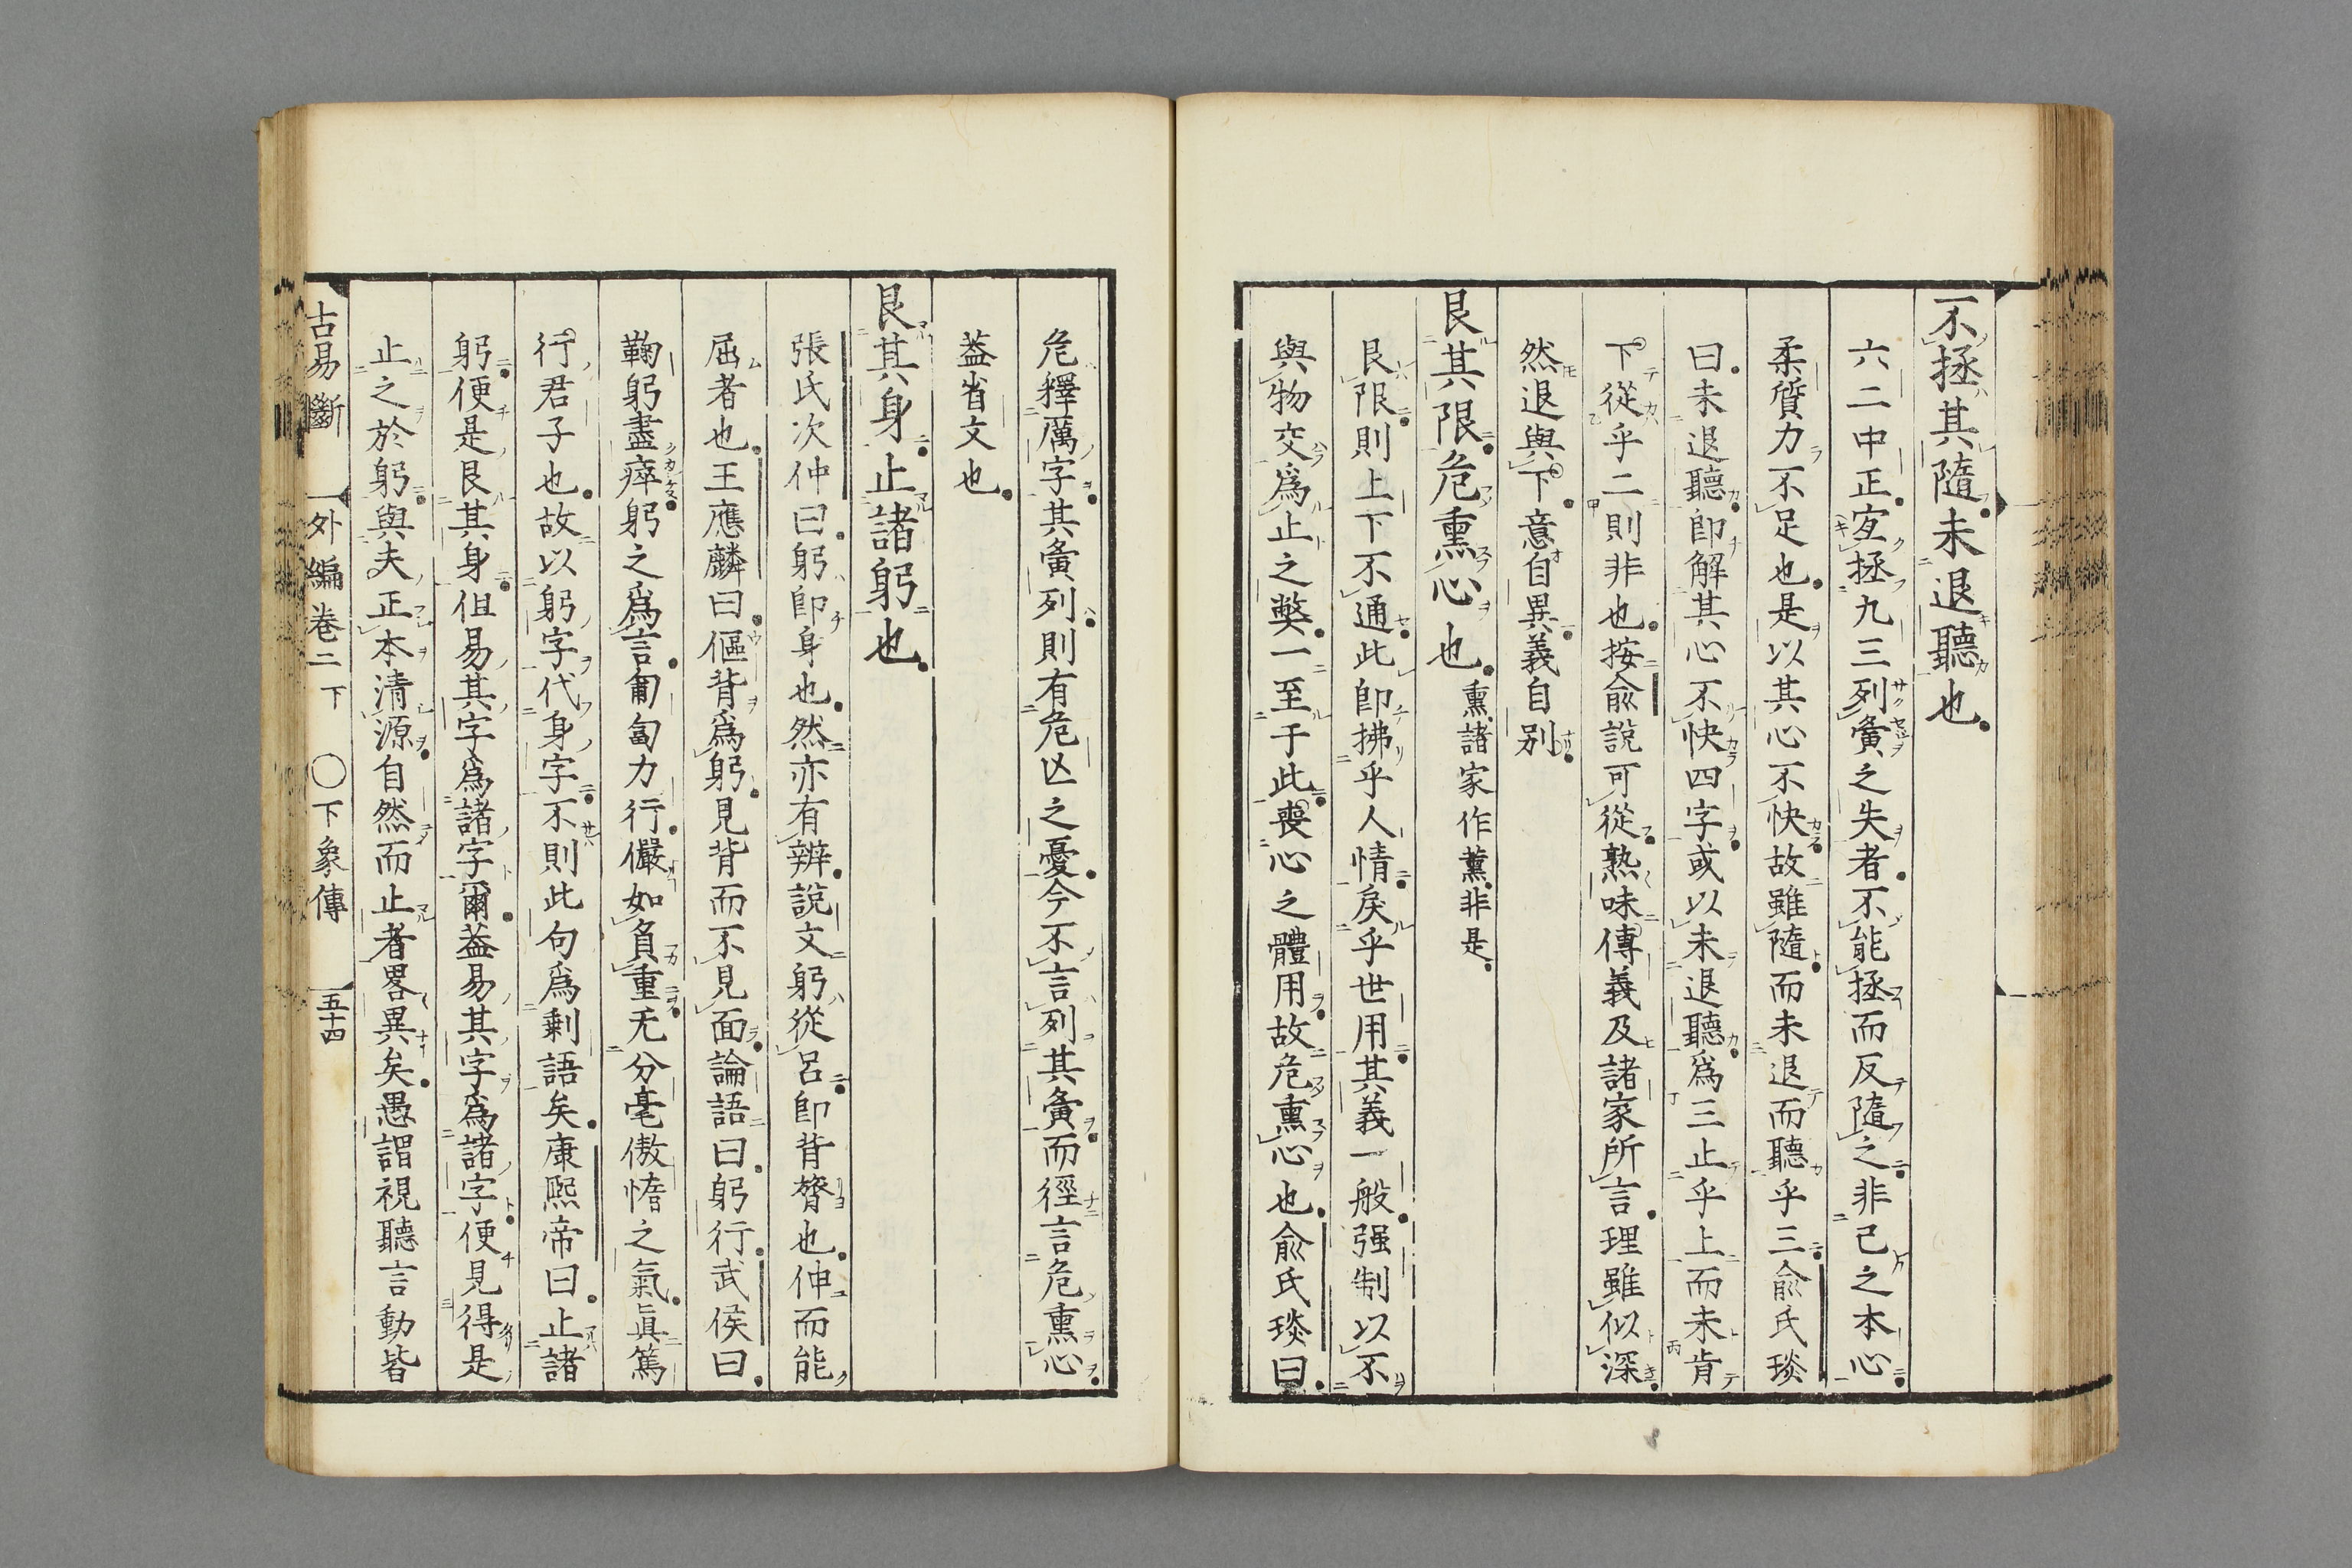 不拯其隨未退聽也
六二中正宐拯九三列夤之失者不能拯而反隨之非己之本心
柔質力不足也是以其心不快故雖隨而未退而聽乎三兪氏琰
曰未退聽卽解其心不快四字或以未退聽爲三止乎上而未肯
下從乎二則非也按兪說可從熟味傳義及諸家所言理雖似深
然退與下意自異義自別
艮其限危熏心也熏諸家作薰非是
艮限則上下不通此卽拂乎人情戾乎世用其義一般强制以不
與物交爲止之獘一至于此喪心之體用故危熏心也兪氏琰曰
危釋厲字其夤列則有危凶之憂今不言列其夤而徑言危熏心
葢省文也
艮其身止諸躬也
張氏次仲曰躬卽身也然亦有辨說文躬從呂卽背膂也伸而能
屈者也王應麟曰傴背爲躬見背而不見面論語曰躬行武侯曰
鞠躬盡瘁躬之爲言匍匐力行儼如負重无分毫傲惰之氣眞篤
行君子也故以躬字代身字不則此句爲剩語矣康熙帝曰止諸
躬便是艮其身但易其字爲諸字爾葢易其字爲諸字便見得是
止之於躬與夫正本清源自然而止者畧異矣愚謂視聽言動皆
古易斷 外編卷二下 〇下象傳 五十四